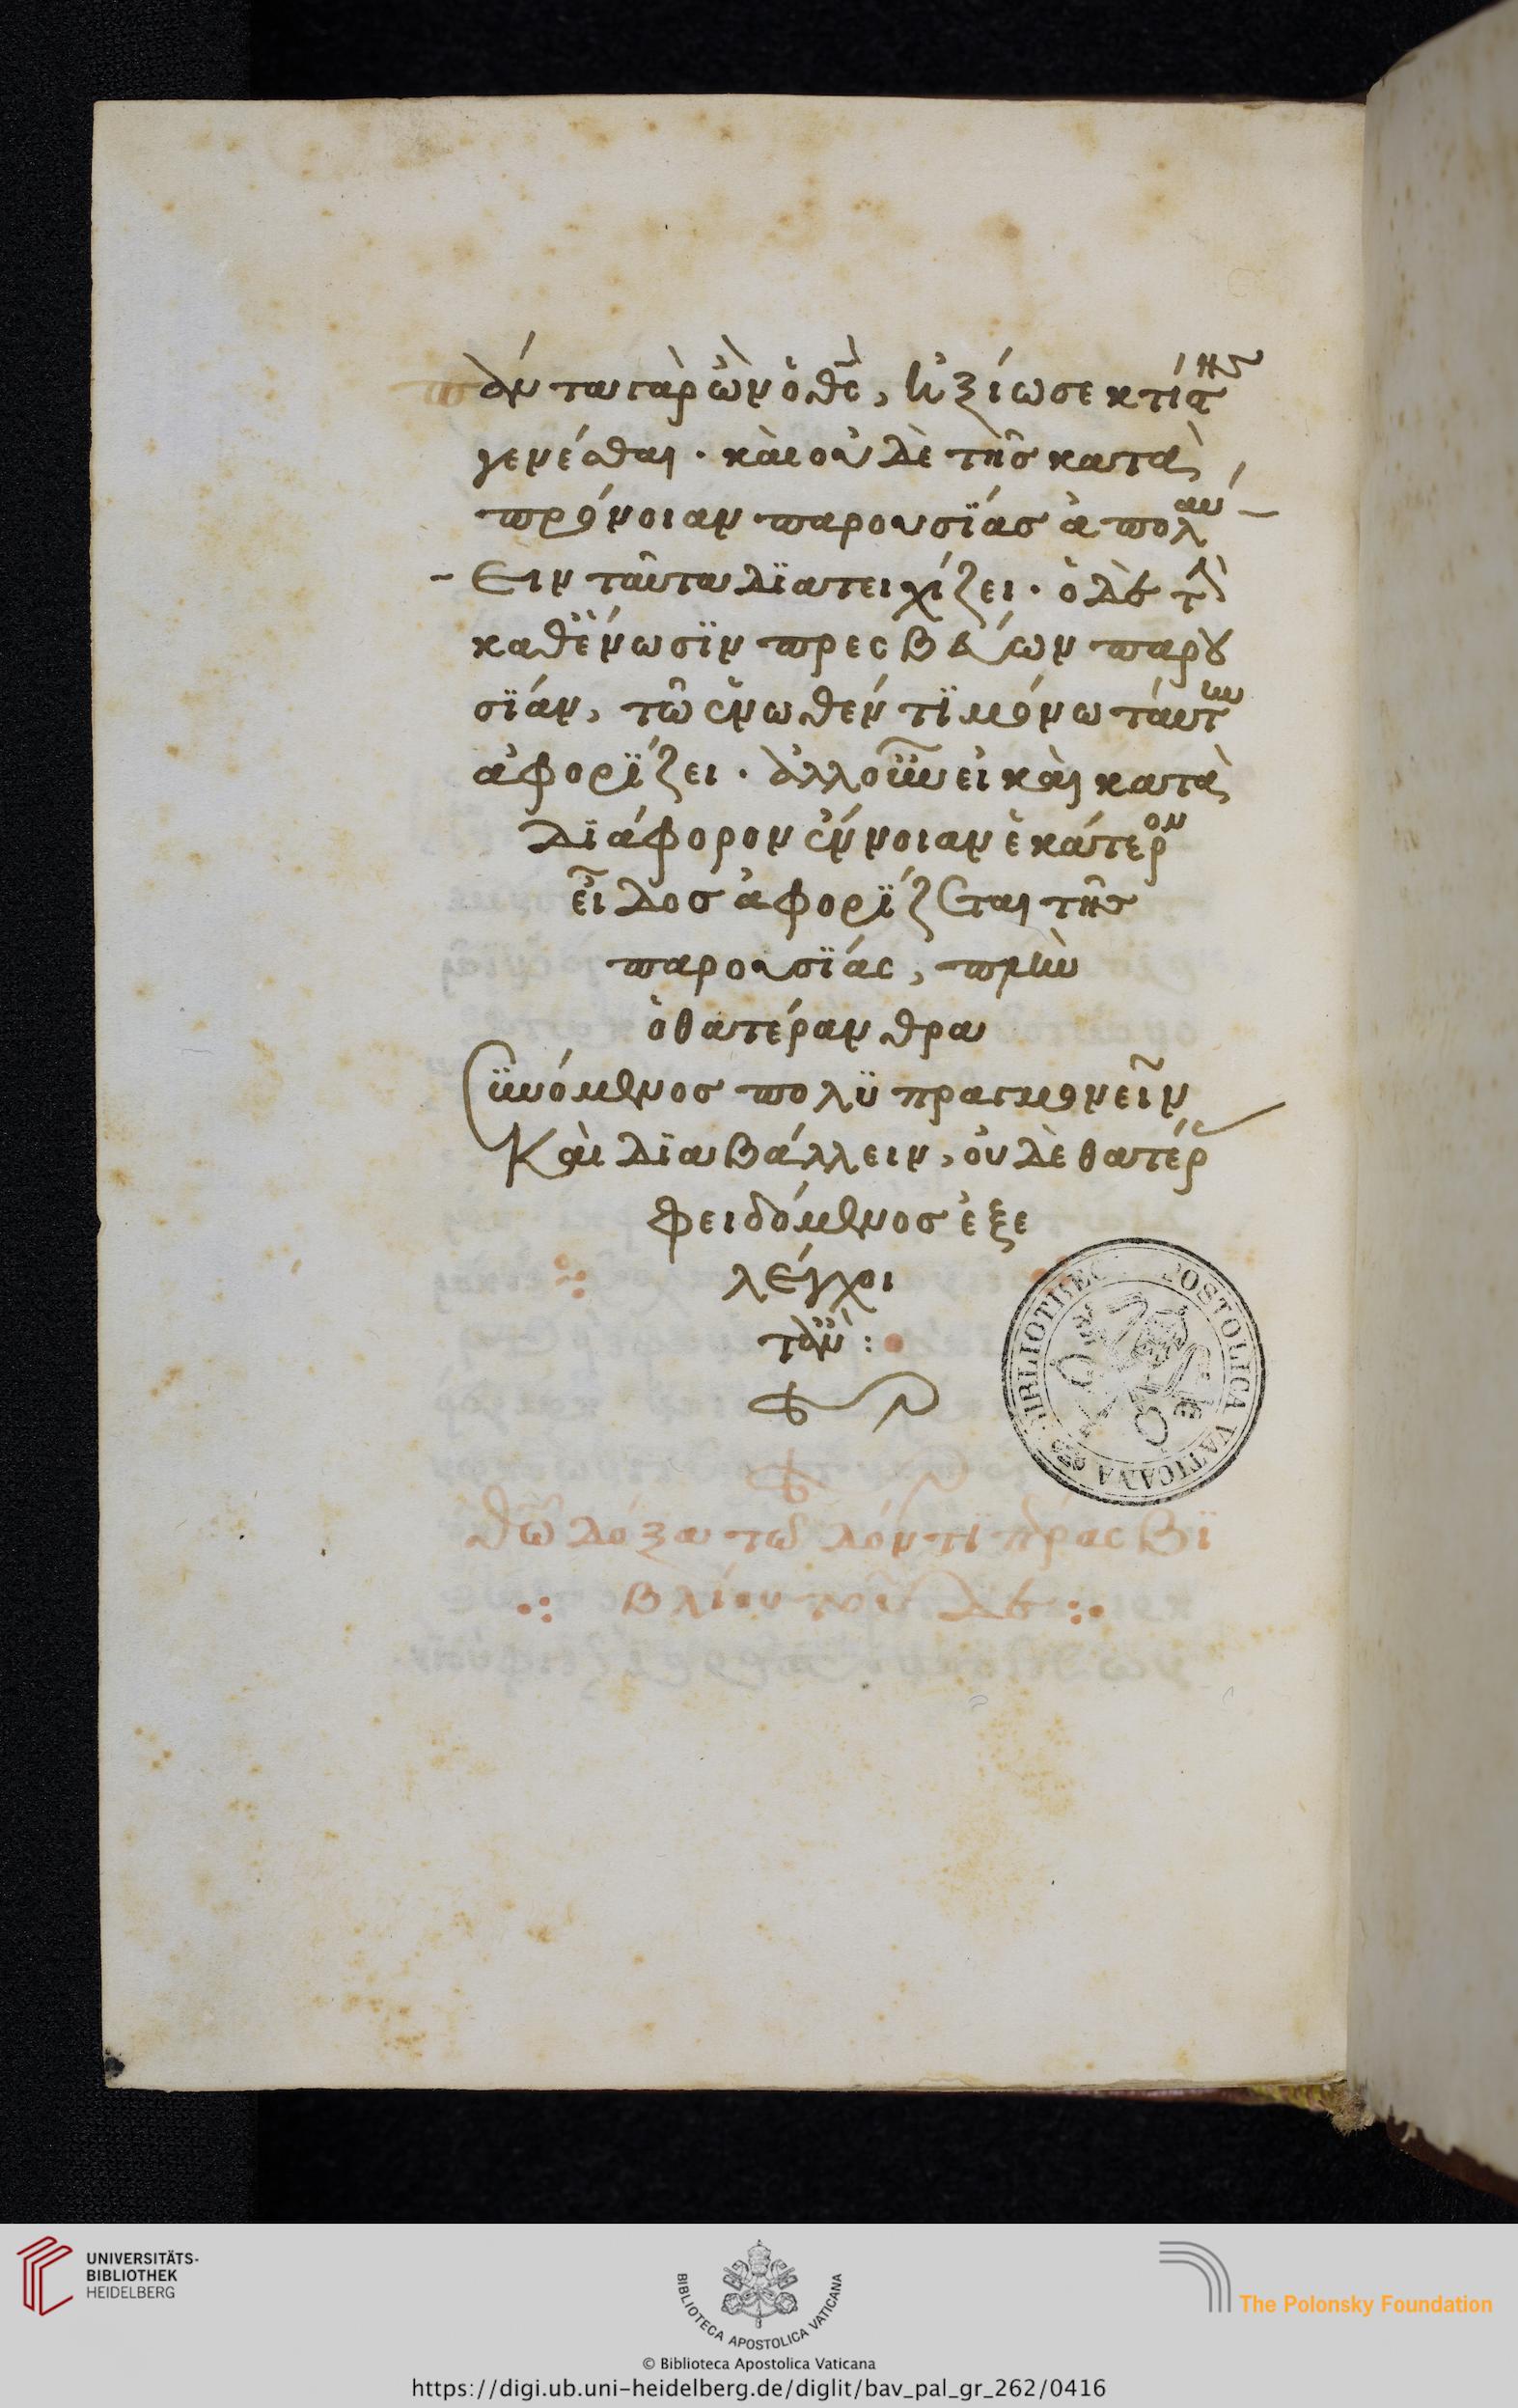 πάντα γὰρ ὧν ὁ θς, ἠξίωσε κτίστης
γενέσθαι. καὶ οὐδὲ τῆς κατὰ
πρόνοιαν παρουσίας ἀπολαύ
ειν ταῦτα διατειχίζει. ὁ δὲ τὴν
καθ' ἕνωσϊν πρεσβεύων παρου
σϊάν, τῶ ἑνωθέντϊ μόνω ταύτην
ἀφορΐζει. ἀλλ' οὖν εἰ καὶ κατὰ
Διάφορον ἔννοιαν ἑκάτερον
εἶδος ἀφορΐζεται τῆς
παρουσΐας, πλὴν
ὁ θατέραν θρα
ϋνόμενος πολϋπραγμονεῖν
Καὶ διαβάλλειν, οὐδὲ θατέρ
φειδόμενος ἐξε
λέγχοι
τ' ἄν:
θῶ δόξα τῶ δόντϊ πέρας βϊ
βλίου τοῦδε
BIBLIOTHECA APOSTOLICA VATICANA
UNIVERSITÄTS-
BIBLIOTHEK
HEIDELBERG
BIBLIOTECA APOSTOLICA VATICANA
The Polonsky Foundation
© Biblioteca Apostolica Vaticana
https://digi.ub.uni-heidelberg.de/diglit/bav_pal_gr_262/0416